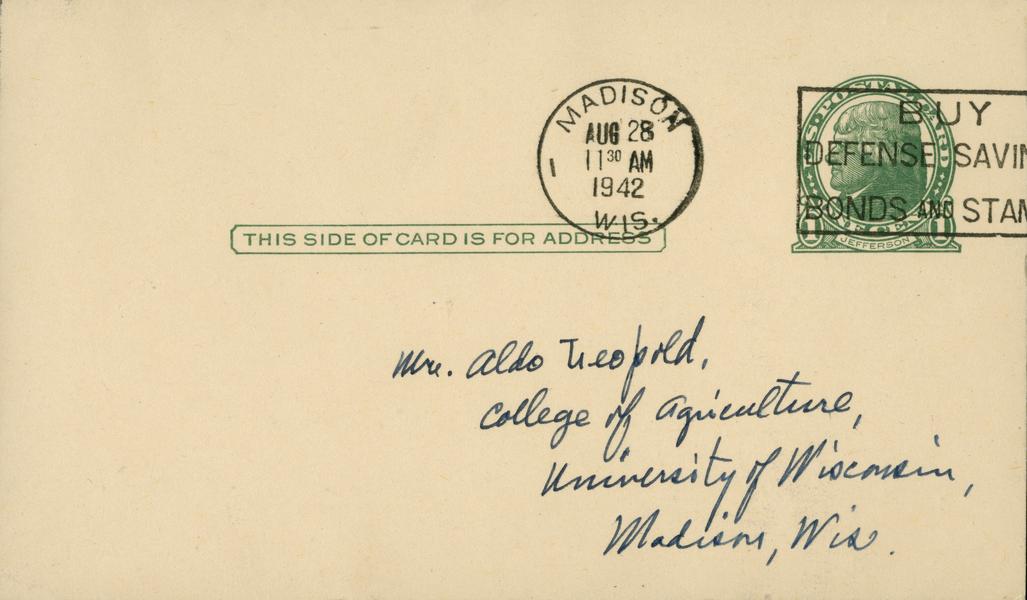 MADISON
AUG 28
11 30 AM
1942
WIS.
1
U.S. POSTAL CARD
BUY
DEFENSE SAVIN
BONDS AND STAM
1 1
JEFFERSON
THIS SIDE OF CARD IS FOR ADDRESS
Mr. Aldo Leopold,
College of Agriculture,
University of Wisconsin,
Madison, Wis.